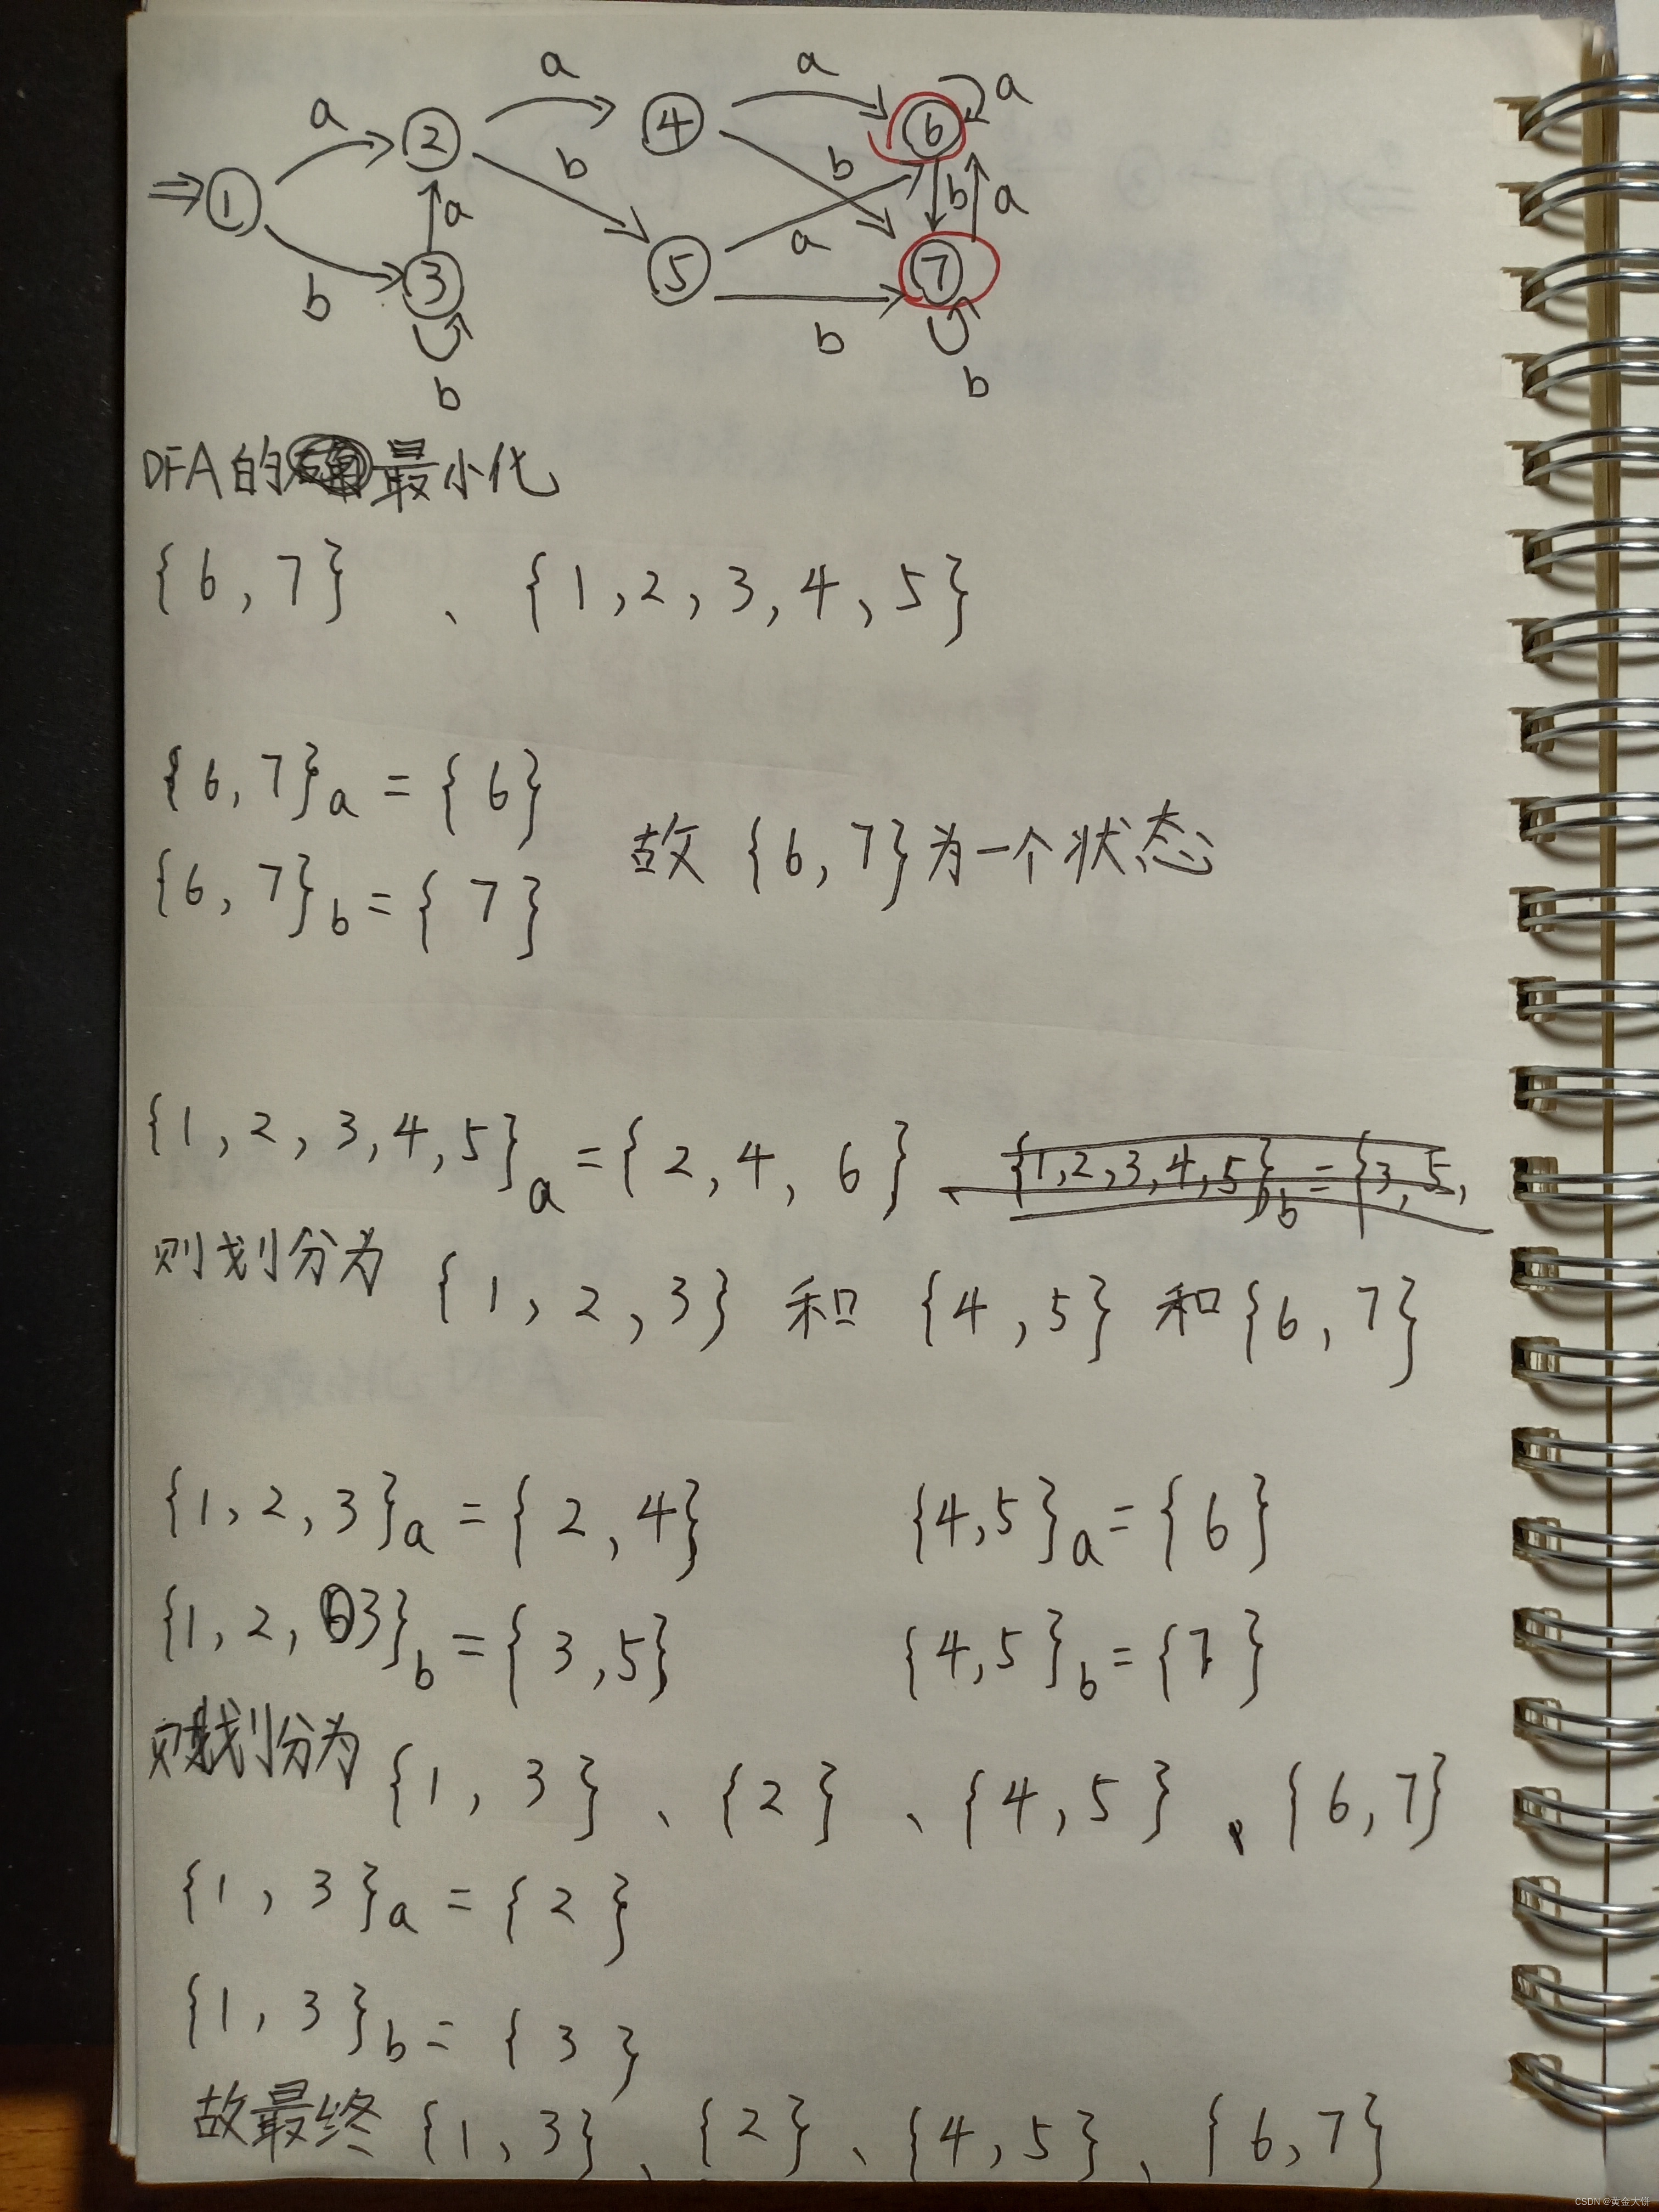 a a a
a ② ④ ⑥ a
⇒① b b b a
a a
b ③ ⑤ ⑦
b b b
DFA的最小化
{6,7} 、 {1,2,3,4,5}
{6,7}a = {6}
故{6,7}为一个状态
{6,7}b = {7}
{1,2,3,4,5}a = {2,4,6}、{1,2,3,4,5}b = {3,5,
则划分为 {1,2,3} 和 {4,5} 和 {6,7}
{1,2,3}a = {2,4} {4,5}a = {6}
{1,2,3}b = {3,5} {4,5}b = {7}
则划分为 {1,3}、{2}、{4,5}、{6,7}
{1,3}a = {2}
{1,3}b = {3}
故最终 {1,3}、{2}、{4,5}、{6,7}
CSDN @黄金大饼